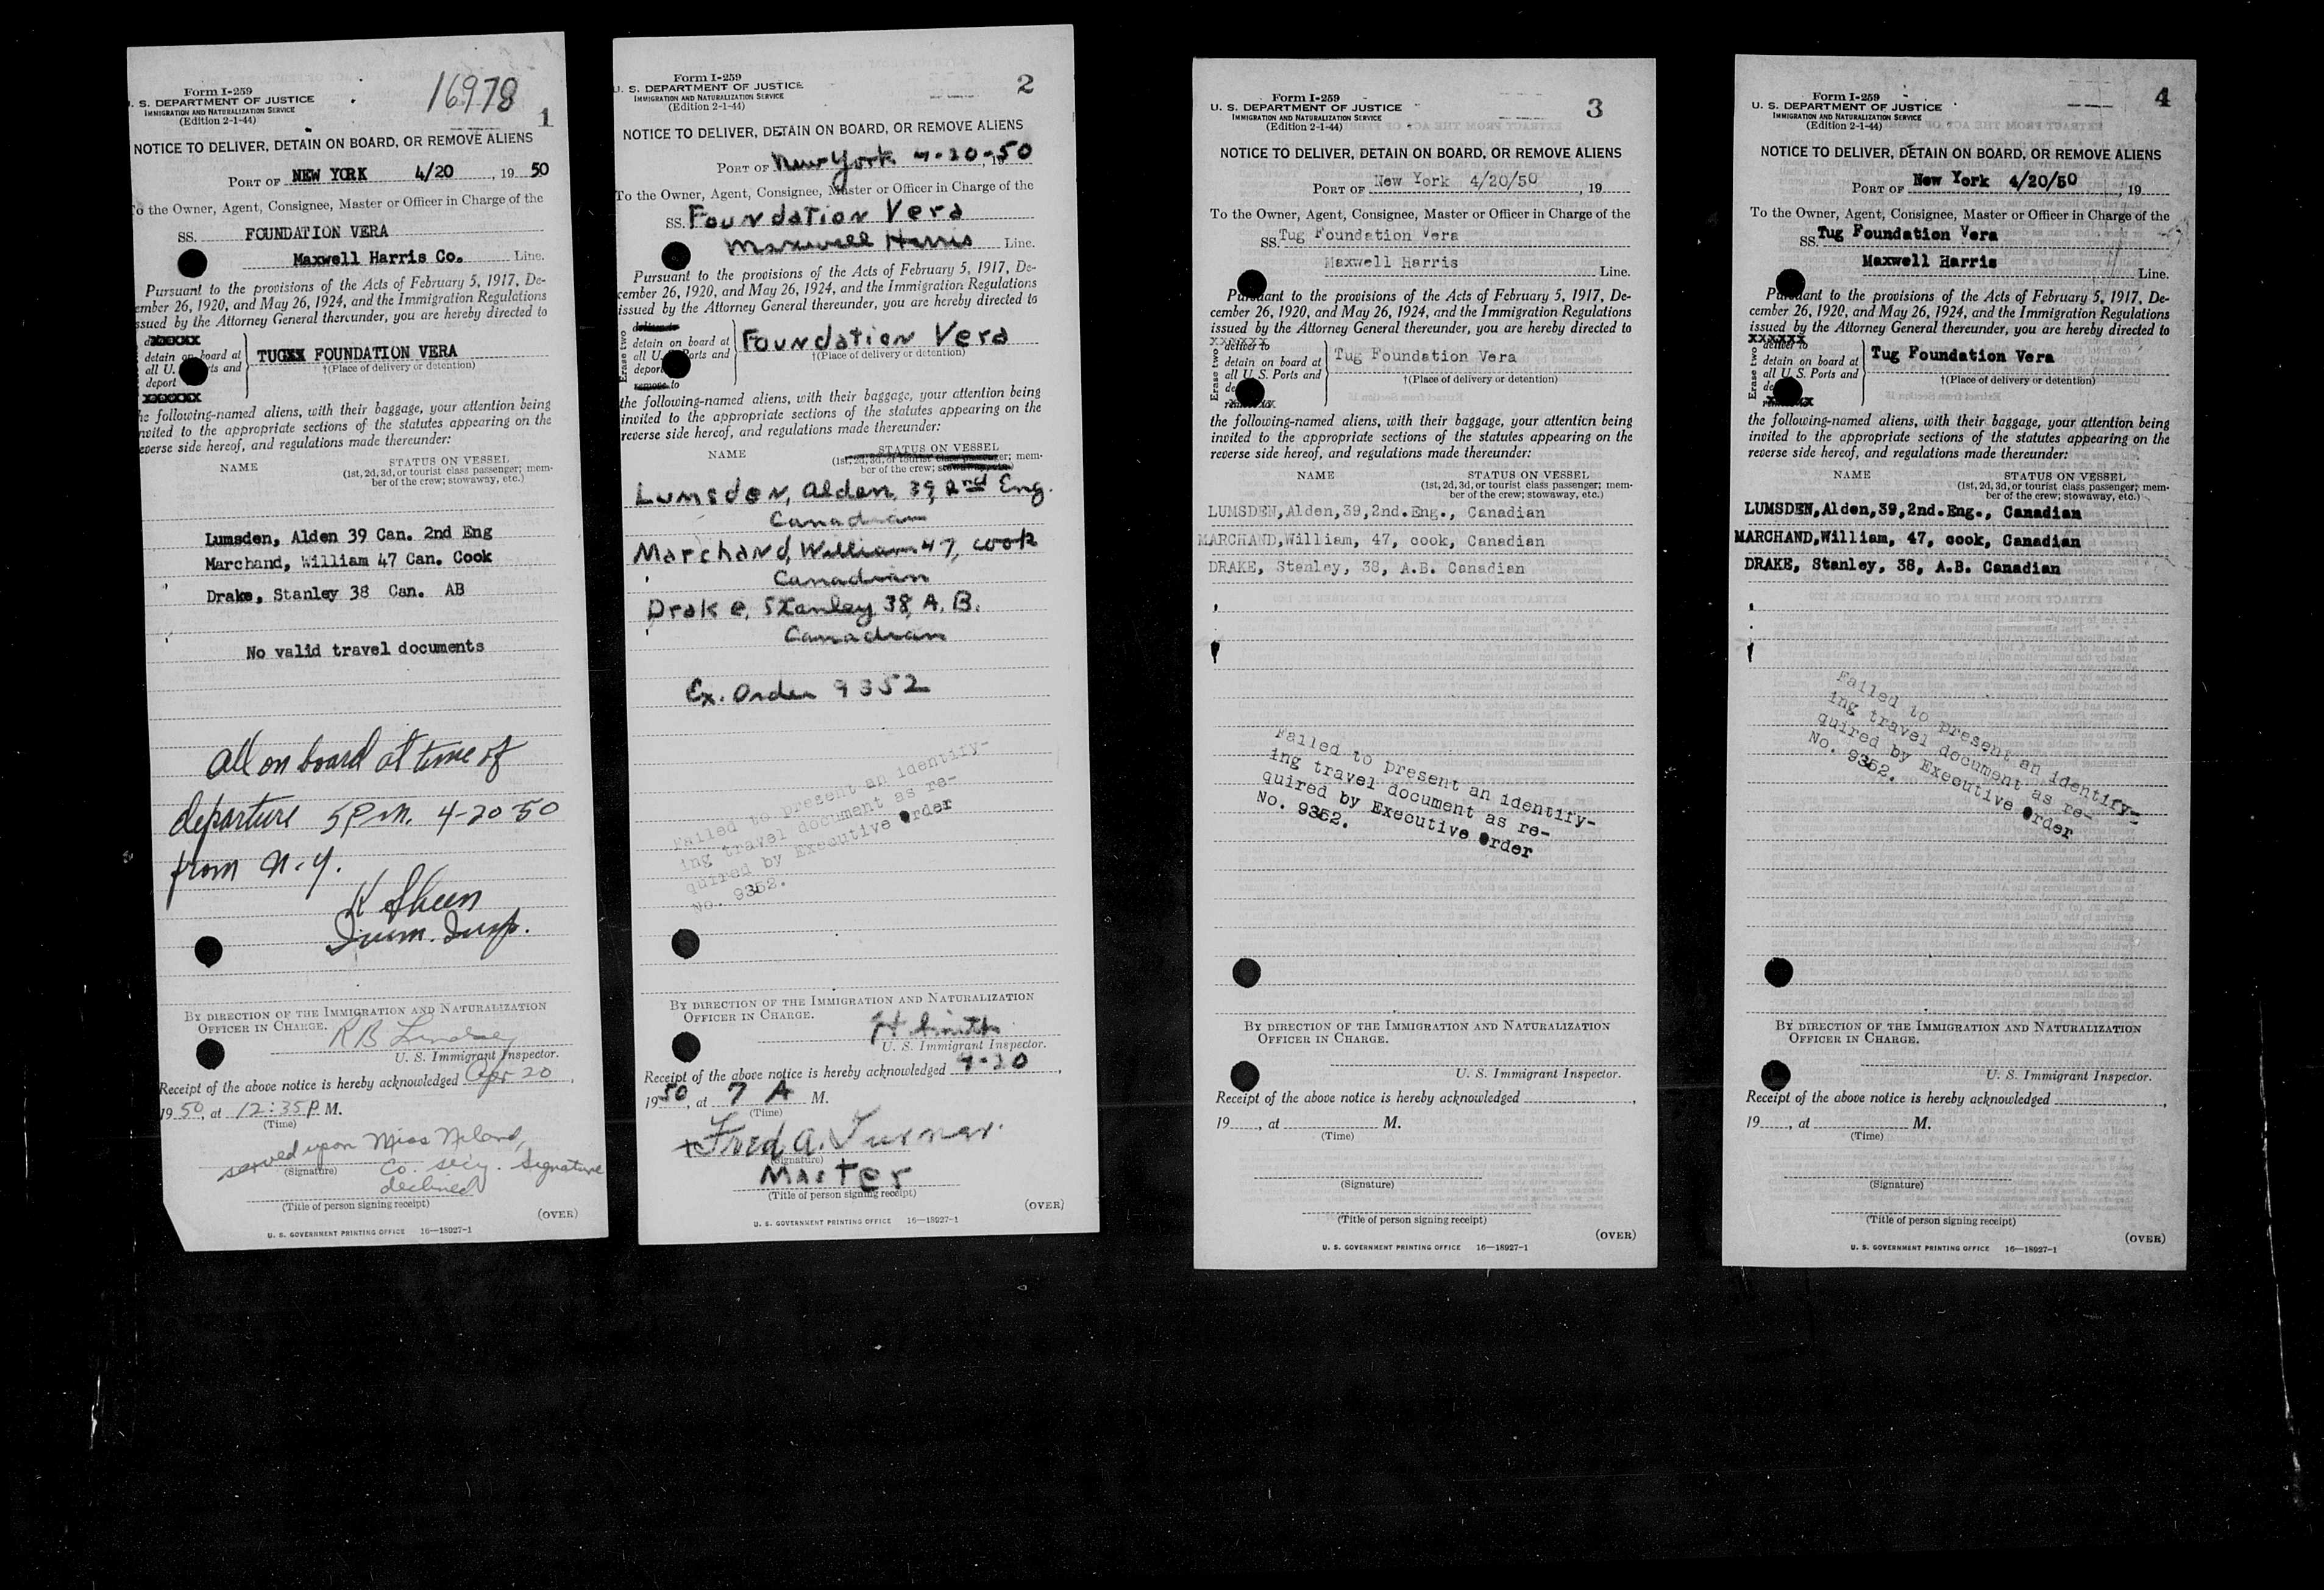 Form I-259
16978
U. S. DEPARTMENT OF JUSTICE
IMMIGRATION AND NATURALIZATION SERVICE
(Edition 2-1-44)
1
NOTICE TO DELIVER, DETAIN ON BOARD, OR REMOVE ALIENS
PORT OF NEW YORK 4/20, 19 50
To the Owner, Agent, Consignee, Master or Officer in Charge of the
SS. FOUNDATION VERA
Maxwell Harris Co. Line.
Pursuant to the provisions of the Acts of February 5, 1917, De-
cember 26, 1920, and May 26, 1924, and the Immigration Regulations
issued by the Attorney General thereunder, you are hereby directed to
detain on board at
all U. S. Ports and
deport
TUGXX FOUNDATION VERA
†(Place of delivery or detention)
the following-named aliens, with their baggage, your attention being
invited to the appropriate sections of the statutes appearing on the
reverse side hereof, and regulations made thereunder:
NAME STATUS ON VESSEL
(1st, 2d, 3d, or tourist class passenger; mem-
ber of the crew; stowaway, etc.)
Lumsden, Alden 39 Can. 2nd Eng
Marchand, William 47 Can. Cook
Drake, Stanley 38 Can. AB
No valid travel documents
All on board at time of
departure 5 P.M. 4-20 50
from N.Y.
K Sheen
Imm. Insp.
BY DIRECTION OF THE IMMIGRATION AND NATURALIZATION
OFFICER IN CHARGE.
R B Lindsey
U. S. Immigrant Inspector.
Receipt of the above notice is hereby acknowledged Apr 20,
19 50, at 12:35 P M.
(Time)
served upon Miss
(Signature) Co. secy. Signature
declined
(Title of person signing receipt)
(OVER)
U. S. GOVERNMENT PRINTING OFFICE 16—18927-1
Form I-259
U. S. DEPARTMENT OF JUSTICE
IMMIGRATION AND NATURALIZATION SERVICE
(Edition 2-1-44)
2
NOTICE TO DELIVER, DETAIN ON BOARD, OR REMOVE ALIENS
PORT OF New York 4-20-, 19 50
To the Owner, Agent, Consignee, Master or Officer in Charge of the
SS. Foundation Vera
Maxwell Harris Line.
Pursuant to the provisions of the Acts of February 5, 1917, De-
cember 26, 1920, and May 26, 1924, and the Immigration Regulations
issued by the Attorney General thereunder, you are hereby directed to
Erase two
deliver to
detain on board at
all U. S. Ports and
deport
remove to
Foundation Vera
†(Place of delivery or detention)
the following-named aliens, with their baggage, your attention being
invited to the appropriate sections of the statutes appearing on the
reverse side hereof, and regulations made thereunder:
NAME STATUS ON VESSEL
(1st, 2d, 3d, or tourist class passenger; mem-
ber of the crew; stowaway, etc.)
Lumsden, Alden, 39, 2nd Eng.
Canadian
Marchand, William 47, cook
Canadian
Drake, Stanley 38, A. B.
Canadian
Ex. Order 9352
Failed to present an identify-
ing travel document as re-
quired by Executive Order
No. 9352.
BY DIRECTION OF THE IMMIGRATION AND NATURALIZATION
OFFICER IN CHARGE.
H Smith
U. S. Immigrant Inspector.
Receipt of the above notice is hereby acknowledged 4-20,
19 50, at 7 A M.
(Time)
+ Fred A. Turner.
(Signature)
Master
(Title of person signing receipt)
(OVER)
U. S. GOVERNMENT PRINTING OFFICE 16—18927-1
Form I-259
U. S. DEPARTMENT OF JUSTICE
IMMIGRATION AND NATURALIZATION SERVICE
(Edition 2-1-44)
3
NOTICE TO DELIVER, DETAIN ON BOARD, OR REMOVE ALIENS
PORT OF New York 4/20/50, 19
To the Owner, Agent, Consignee, Master or Officer in Charge of the
SS. Tug Foundation Vera
Maxwell Harris Line.
Pursuant to the provisions of the Acts of February 5, 1917, De-
cember 26, 1920, and May 26, 1924, and the Immigration Regulations
issued by the Attorney General thereunder, you are hereby directed to
Erase two
deliver to
detain on board at
all U. S. Ports and
Tug Foundation Vera
†(Place of delivery or detention)
the following-named aliens, with their baggage, your attention being
invited to the appropriate sections of the statutes appearing on the
reverse side hereof, and regulations made thereunder:
NAME STATUS ON VESSEL
(1st, 2d, 3d, or tourist class passenger; mem-
ber of the crew; stowaway, etc.)
LUMSDEN,Alden,39,2nd.Eng., Canadian
MARCHAND,William, 47, cook, Canadian
DRAKE, Stanley, 38, A.B. Canadian
Failed to present an identify-
ing travel document as re-
quired by Executive Order
No. 9352.
BY DIRECTION OF THE IMMIGRATION AND NATURALIZATION
OFFICER IN CHARGE.
U. S. Immigrant Inspector.
Receipt of the above notice is hereby acknowledged ,
19 , at M.
(Time)
(Signature)
(Title of person signing receipt)
(OVER)
U. S. GOVERNMENT PRINTING OFFICE 16—18927-1
Form I-259
U. S. DEPARTMENT OF JUSTICE
IMMIGRATION AND NATURALIZATION SERVICE
(Edition 2-1-44)
4
NOTICE TO DELIVER, DETAIN ON BOARD, OR REMOVE ALIENS
PORT OF New York 4/20/50, 19
To the Owner, Agent, Consignee, Master or Officer in Charge of the
SS. Tug Foundation Vera
Maxwell Harris Line.
Pursuant to the provisions of the Acts of February 5, 1917, De-
cember 26, 1920, and May 26, 1924, and the Immigration Regulations
issued by the Attorney General thereunder, you are hereby directed to
Erase two
deliver to
detain on board at
all U. S. Ports and
Tug Foundation Vera
†(Place of delivery or detention)
the following-named aliens, with their baggage, your attention being
invited to the appropriate sections of the statutes appearing on the
reverse side hereof, and regulations made thereunder:
NAME STATUS ON VESSEL
(1st, 2d, 3d, or tourist class passenger; mem-
ber of the crew; stowaway, etc.)
LUMSDEN,Alden,39,2nd.Eng., Canadian
MARCHAND,William, 47, cook, Canadian
DRAKE, Stanley, 38, A.B. Canadian
Failed to present an identify-
ing travel document as re-
quired by Executive Order
No. 9352.
BY DIRECTION OF THE IMMIGRATION AND NATURALIZATION
OFFICER IN CHARGE.
U. S. Immigrant Inspector.
Receipt of the above notice is hereby acknowledged ,
19 , at M.
(Time)
(Signature)
(Title of person signing receipt)
(OVER)
U. S. GOVERNMENT PRINTING OFFICE 16—18927-1